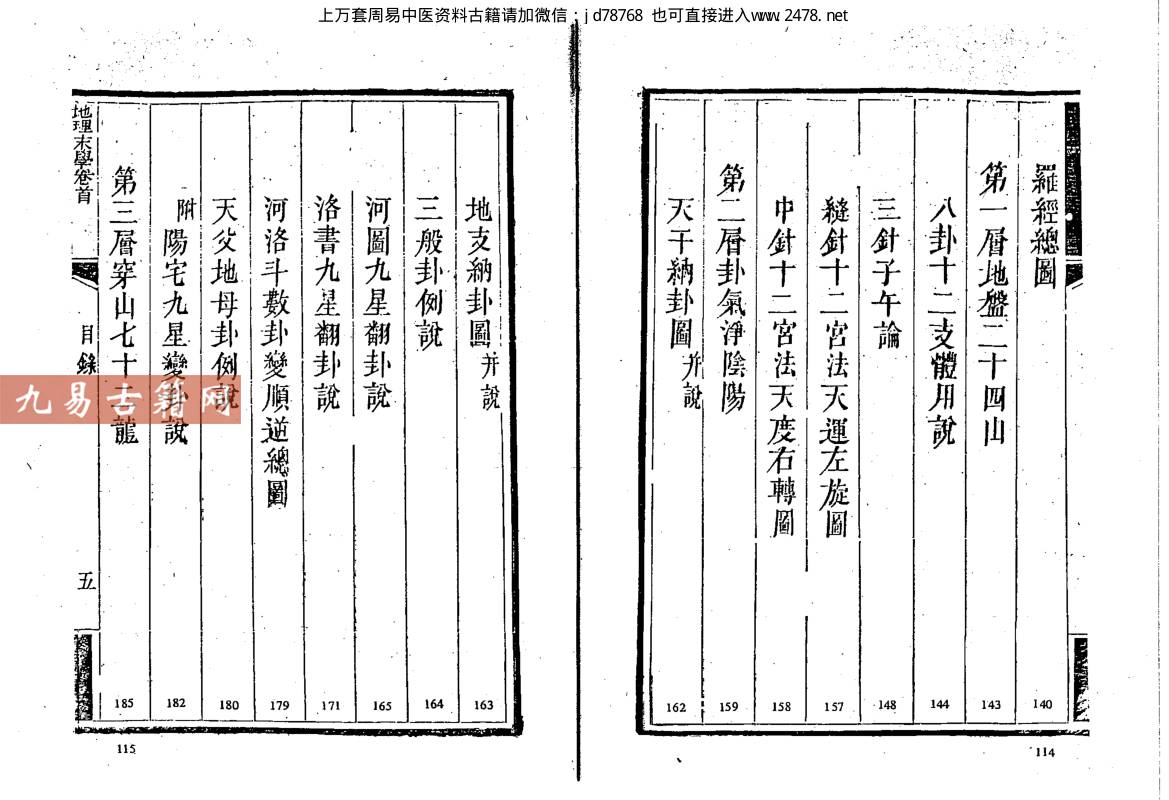 上万套周易中医资料古籍请加微信：jd78768 也可直接进入www.2478.net
羅經總圖
140
第一層地盤二十四山
143
八卦十二支體用說
144
三針子午論
148
縫針十二宮法天運左旋圖
157
中針十二宮法天度右轉圖
158
第二層卦氣淨陰陽
159
天干納卦圖并說
162
114
地支納卦圖并說
163
三般卦例說
164
河圖九星翻卦說
165
洛書九星翻卦說
171
河洛斗數卦變順逆總圖
179
天父地母卦例說
180
附陽宅九星變卦說
182
第三層穿山七十二龍
185
地理末學卷首
目錄
五
115
九易古籍网